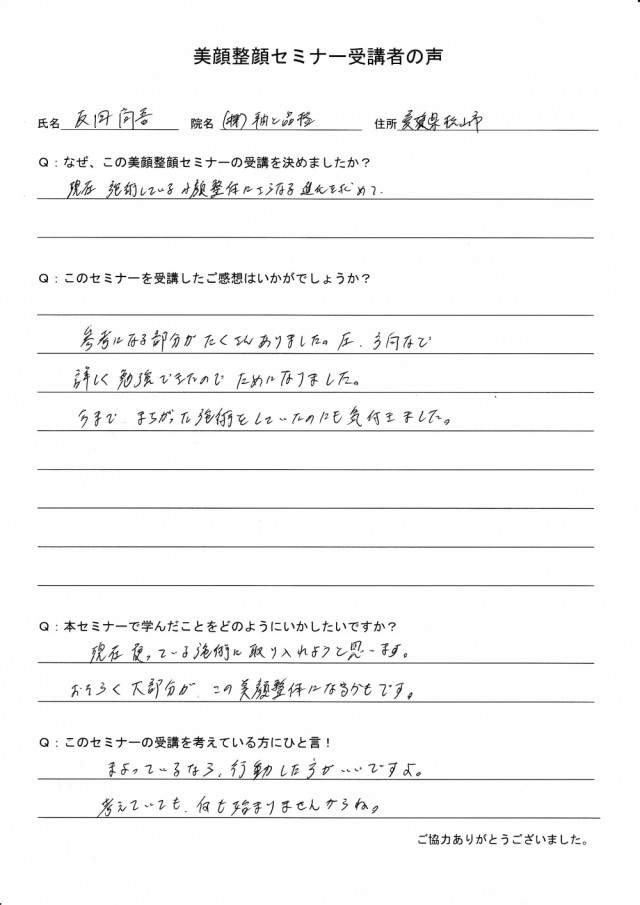 美顔整顔セミナー受講者の声
氏名 友田 院名 (株)軸と品格 住所 愛媛県松山市
Q：なぜ、この美顔整顔セミナーの受講を決めましたか？
現在 施術している小顔整体にさらなる進化を求めて.
Q：このセミナーを受講したご感想はいかがでしょうか？
参考になる部分がたくさんありました。圧、方向など
詳しく勉強できたので ためになりました。
今まで、まちがった施術をしていたのにも気付きました。
Q：本セミナーで学んだことをどのようにいかしたいですか？
現在 使っている施術に取り入れようと思います。
おそらく大部分が、この美顔整体になるかもです。
Q：このセミナーの受講を考えている方にひと言！
まよっているなら、行動した方がいいですよ。
考えていても、何も始まりませんからね。
ご協力ありがとうございました。